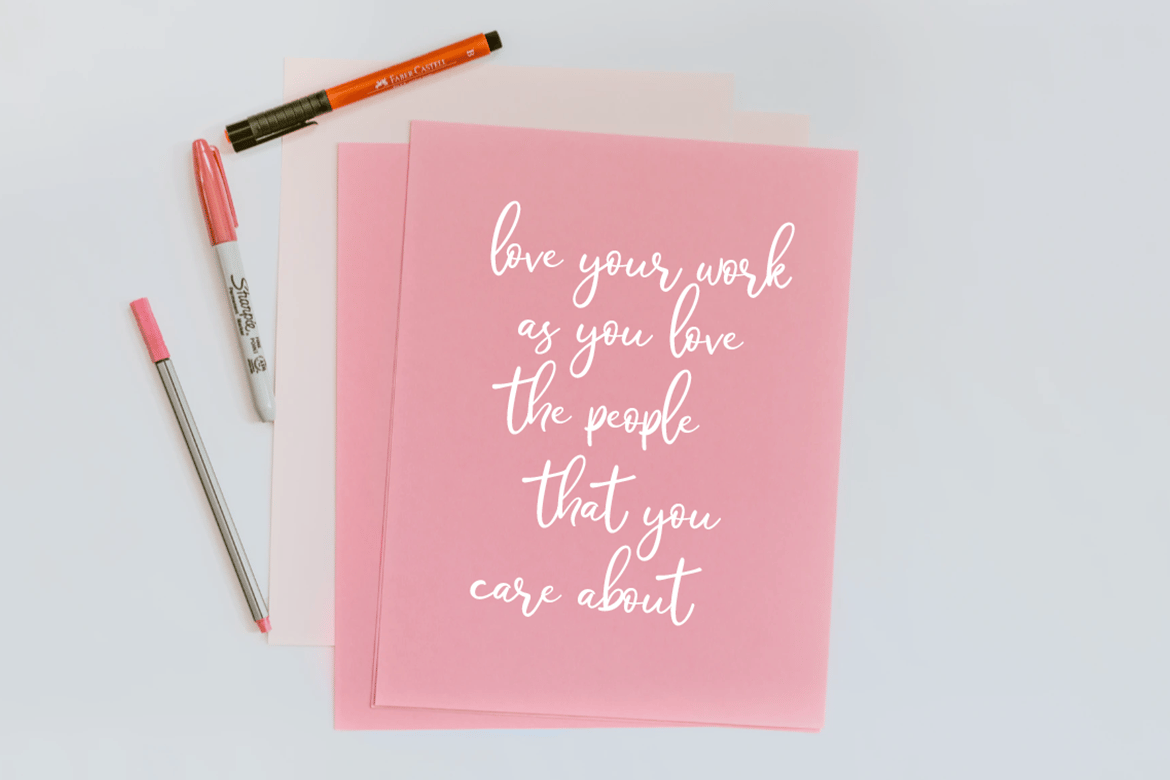 B
FABER CASTELL
Sharpie
love your work
as you love
the people
that you
care about